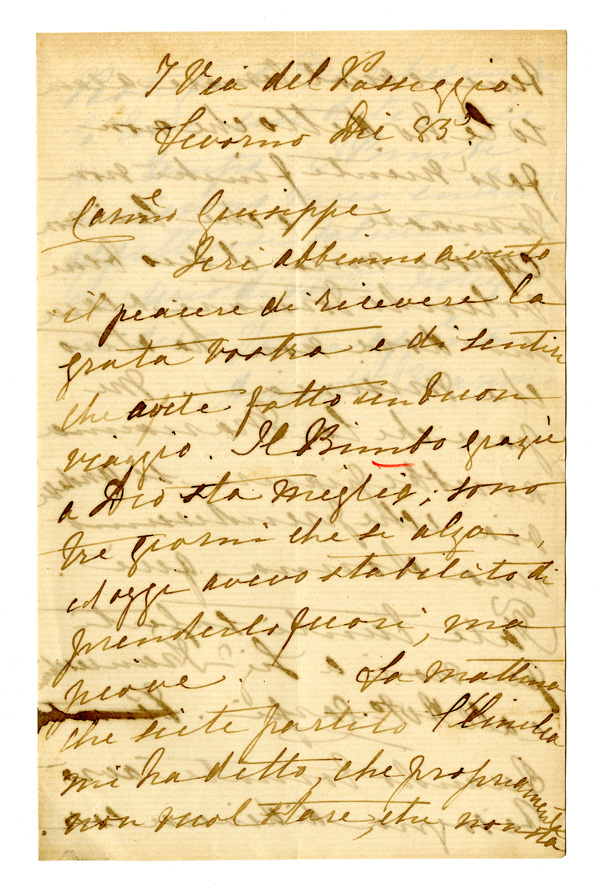 7 Via del Passeggio
Livorno Die 83.
Carmo Giuseppe
Ieri abbiamo avuto
il piacere di ricevere la
grata vostra e di sentire
che avete fatto un buon
viaggio. Il Bimbo grazie
a Dio sta meglio, sono
tre giorni che si alza,
ed oggi avevo stabilito di
prenderlo fuori, ma
piove. La mattina
che siete partito
mi ha detto, che propriamente
non vuol stare, che non sta